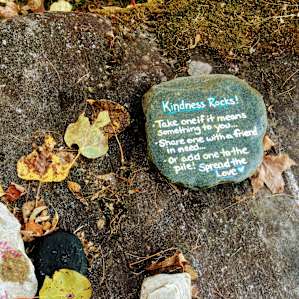 Kindness Rocks!
Take one if it means
something to you...
Share one with a friend
in need...
or add one to the
pile! Spread the
Love